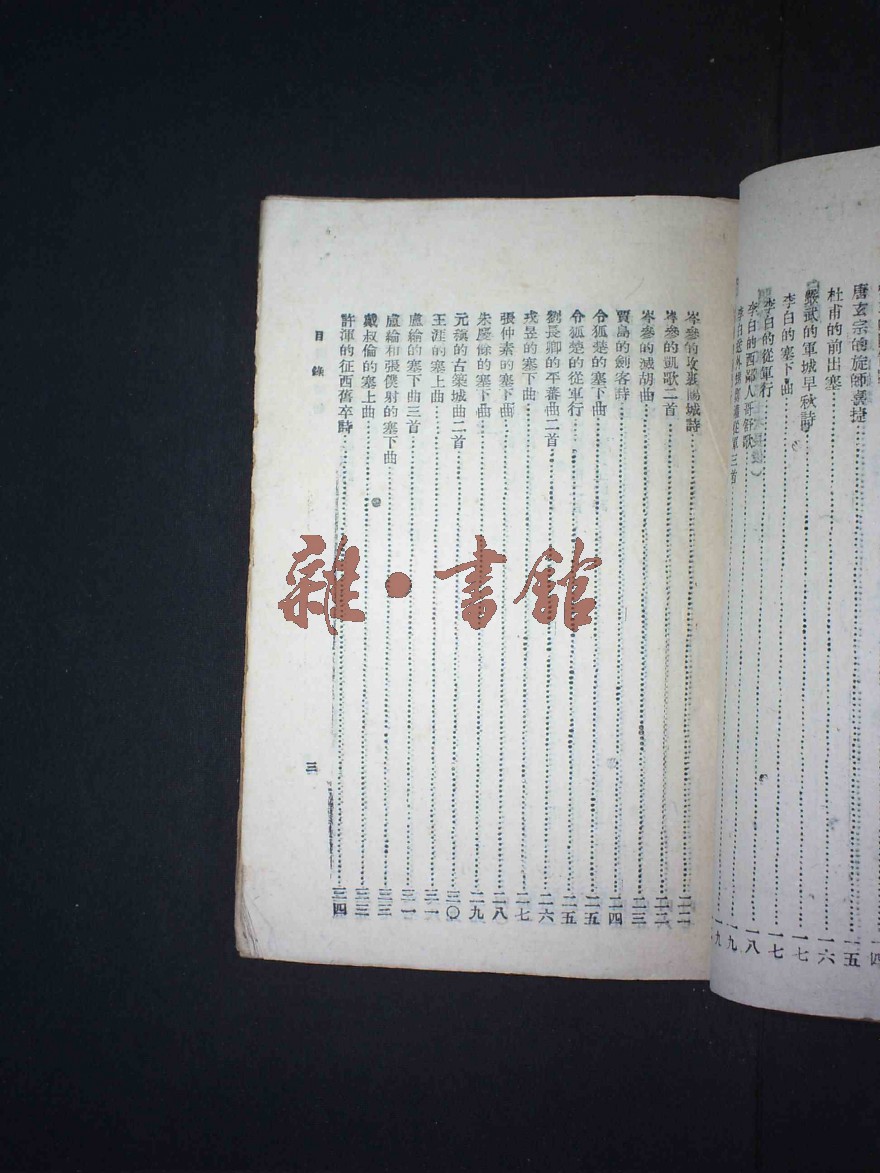 唐玄宗的旋師喜捷……一五
杜甫的前出塞……一六
嚴武的軍城早秋詩……一七
李白的塞下曲……一七
李白的從軍行……一八
李白的西鄙人哥舒歌……一九
岑參的凱歌二首……二二
岑參的滅胡曲……二三
賈島的劍客詩……二四
令狐楚的塞下曲……二五
令狐楚的從軍行……二五
劉長卿的平蕃曲二首……二六
戎昱的塞下曲……二七
張仲素的塞下曲……二八
朱慶餘的塞下曲……二九
元稹的古築城曲二首……三〇
王涯的塞上曲……三一
盧綸的塞下曲三首……三一
盧綸和張僕射的塞下曲……三三
戴叔倫的塞上曲……三三
許渾的征西舊卒詩……三四
目錄
三
雜·書館